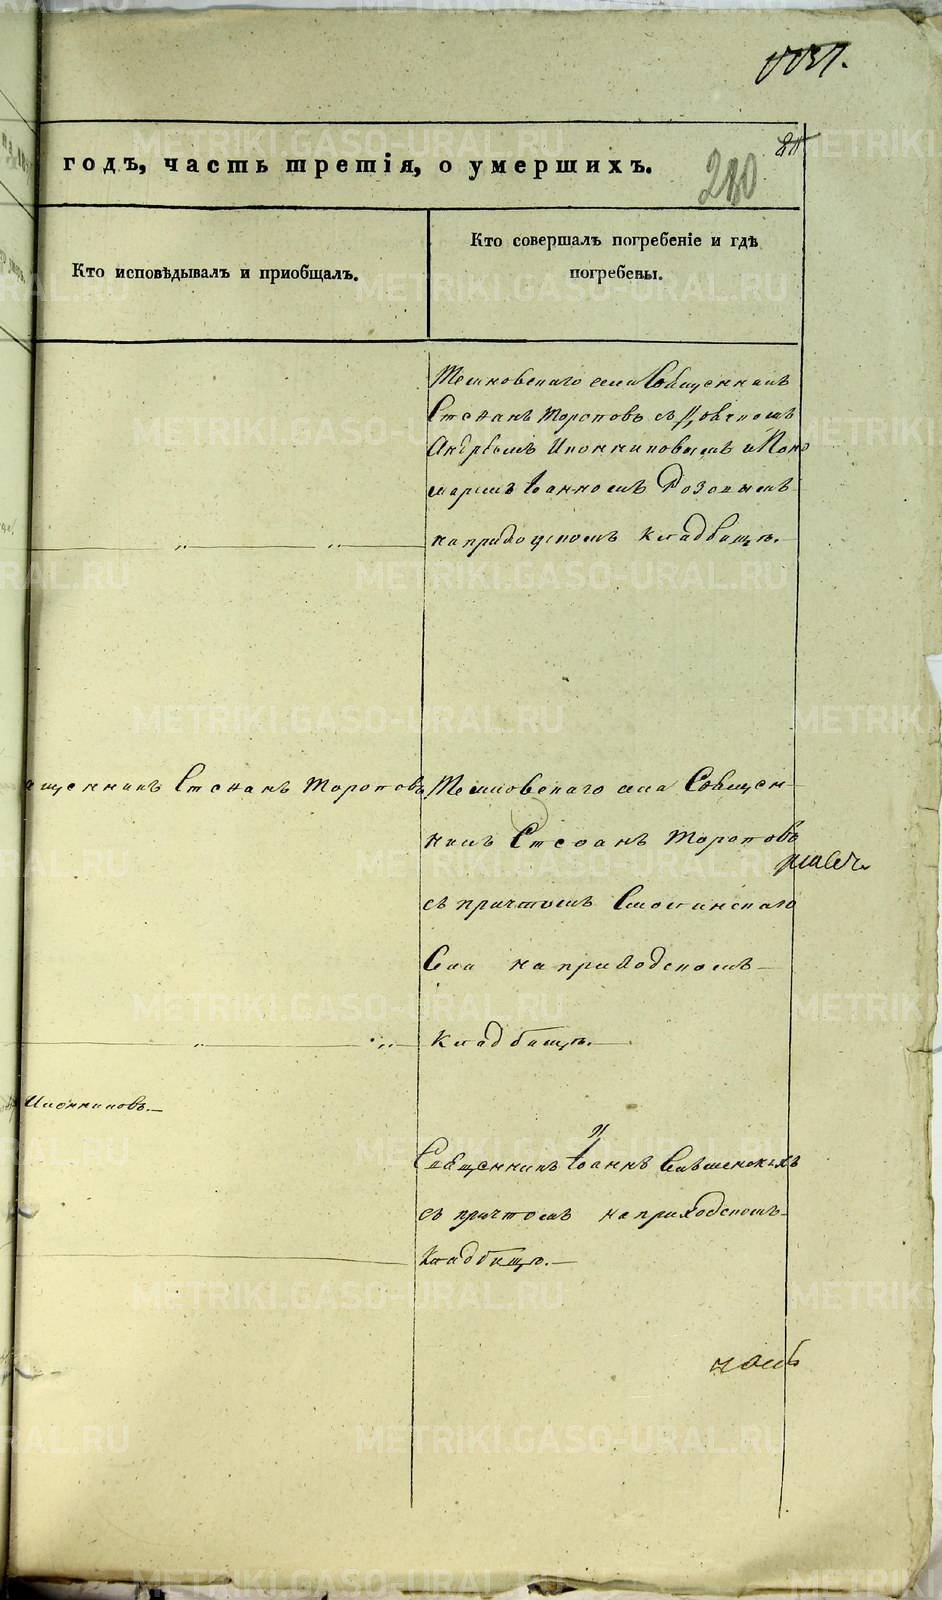 годъ, часть третія, о умершихъ.
280
Кто исповѣдывалъ и пріобщалъ.
Кто совершалъ погребеніе и гдѣ
погребены.
села Священникъ
Стефанъ Тороповъ съ
Андреемъ Иконниковымъ и Поно
маремъ Іоанномъ Розовымъ
на приходскомъ кладбищѣ.
ященникъ Стефанъ Торопов
села Священ
никъ Стефанъ Тороповъ
съ причтомъ
Села на приходскомъ
Кладбищѣ.
Иконниковъ.
Священникъ Іоаннъ
съ причтомъ на приходскомъ
Кладбищѣ.
METRIKI.GASO-URAL.RU